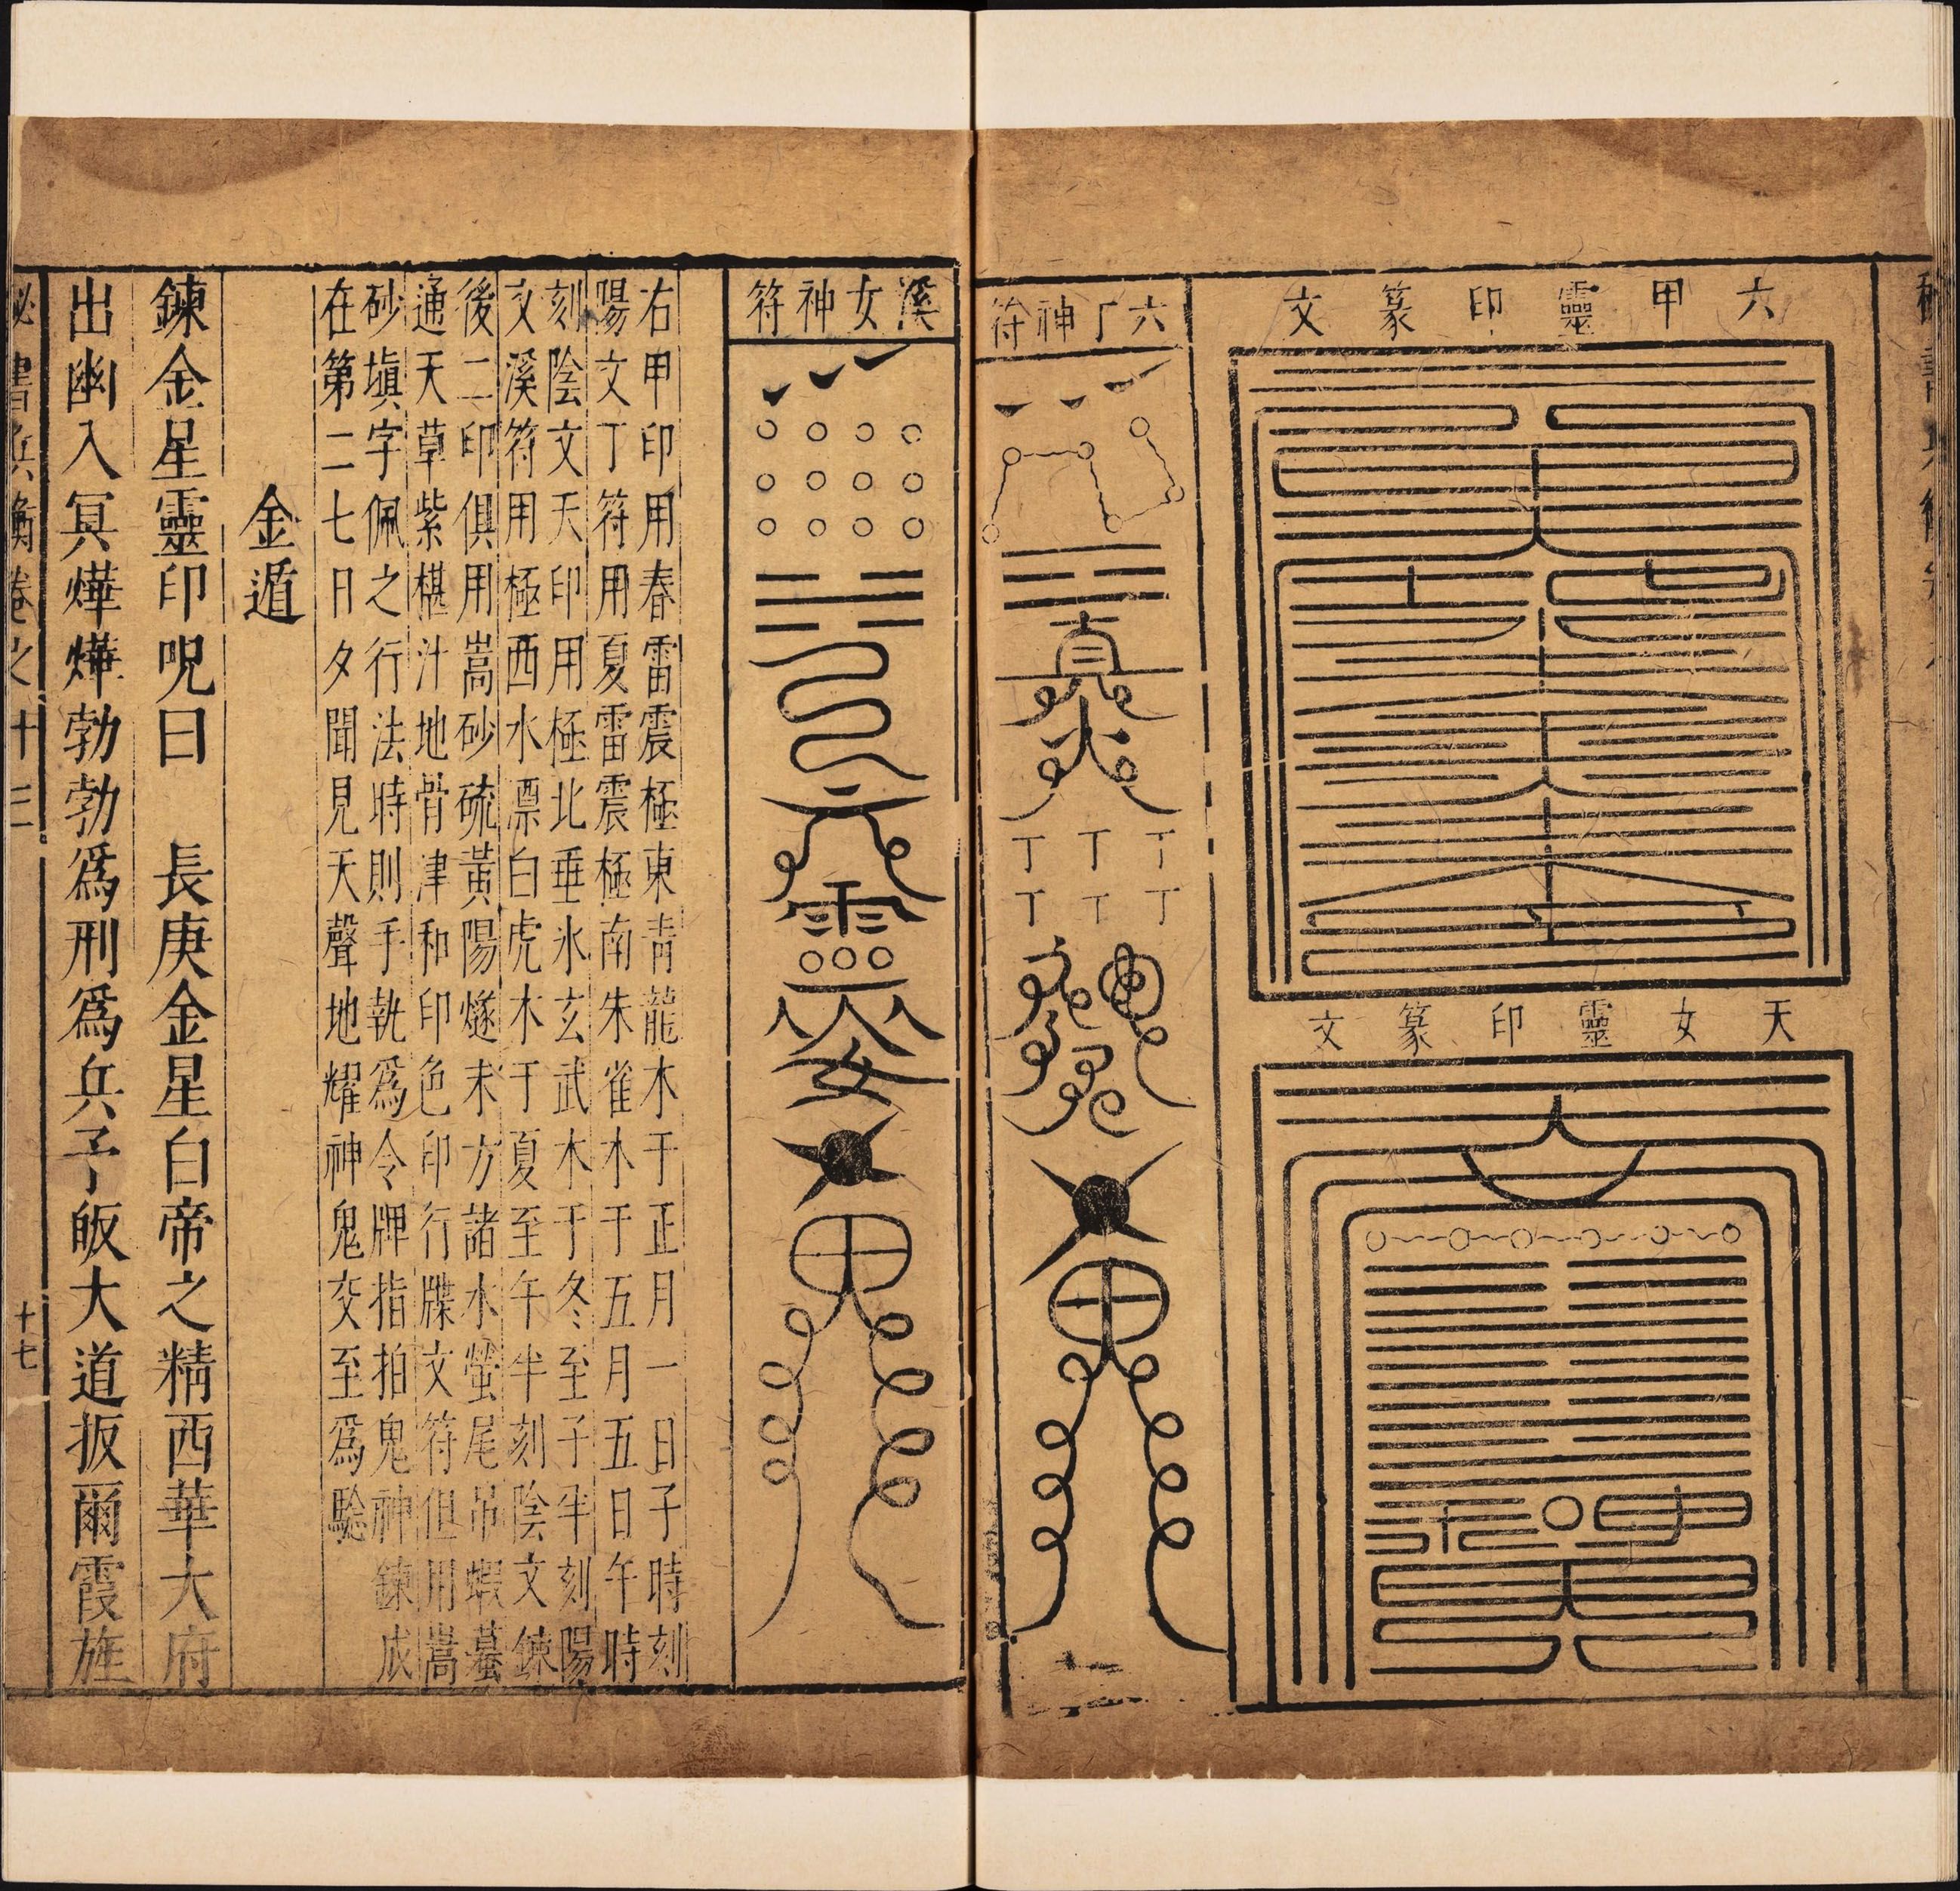 六甲靈印篆文
天女靈印篆文
六丁神符
真
火
丁丁丁
丁丁丁
溪女神符
右甲印用春雷震極東青龍木于正月一日子時刻
陽文丁符用夏雷震極南朱雀木于五月五日午時
刻陰文天印用極北垂氷玄武木于冬至子半刻陽
文溪符用極西水漂白虎木于夏至午半刻陰文鍊
後二印俱用嵩砂硫黃陽燧末方諸水螢尾吊蝦蟇
通天草紫椹汁地骨津和印色印行牒文符但用嵩
砂塡字佩之行法時則手執爲令牌指拍鬼神鍊成
在第二七日夕聞見天聲地耀神鬼交至爲騐
金遁
鍊金星靈印呪曰　長庚金星白帝之精西華大府
出幽入冥燁燁勃勃爲刑爲兵予皈大道扳爾霞旌
秘書兵衡卷之十三
十七